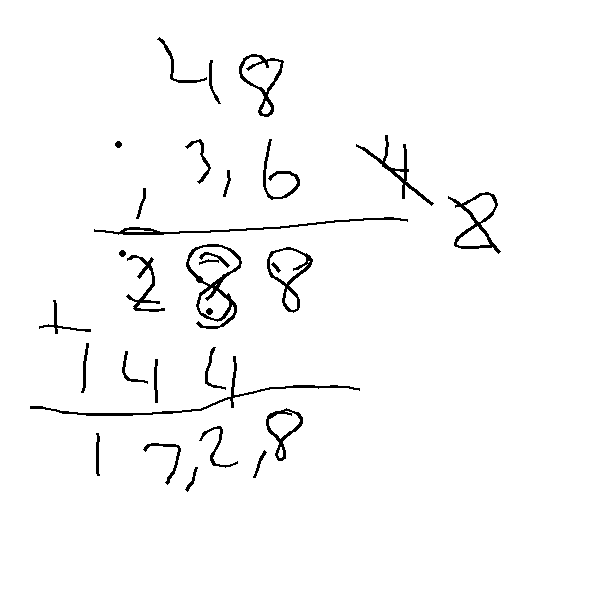 48
3,6 4
, 8
288
+
144
17,2,8